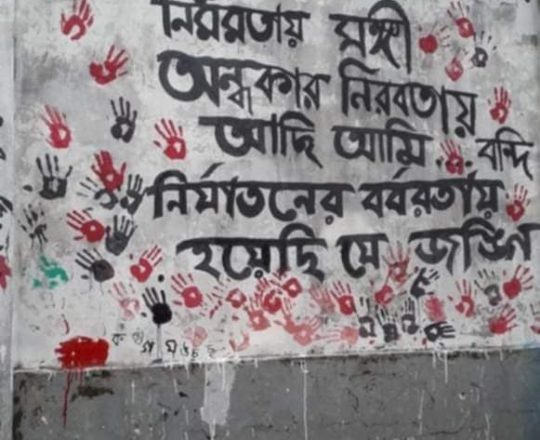 নিরবতায় সঙ্গী
অন্ধকার নিরবতায়
আছি আমি... বন্দি
নির্যাতনের বর্বরতায়
হয়েছি যে জঙ্গি
ক খ গ ঘ ঙ চ ছ